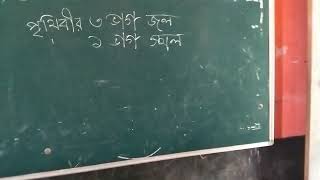 পৃথিবীর ৩ ভাগ জল
১ ভাগ স্থল